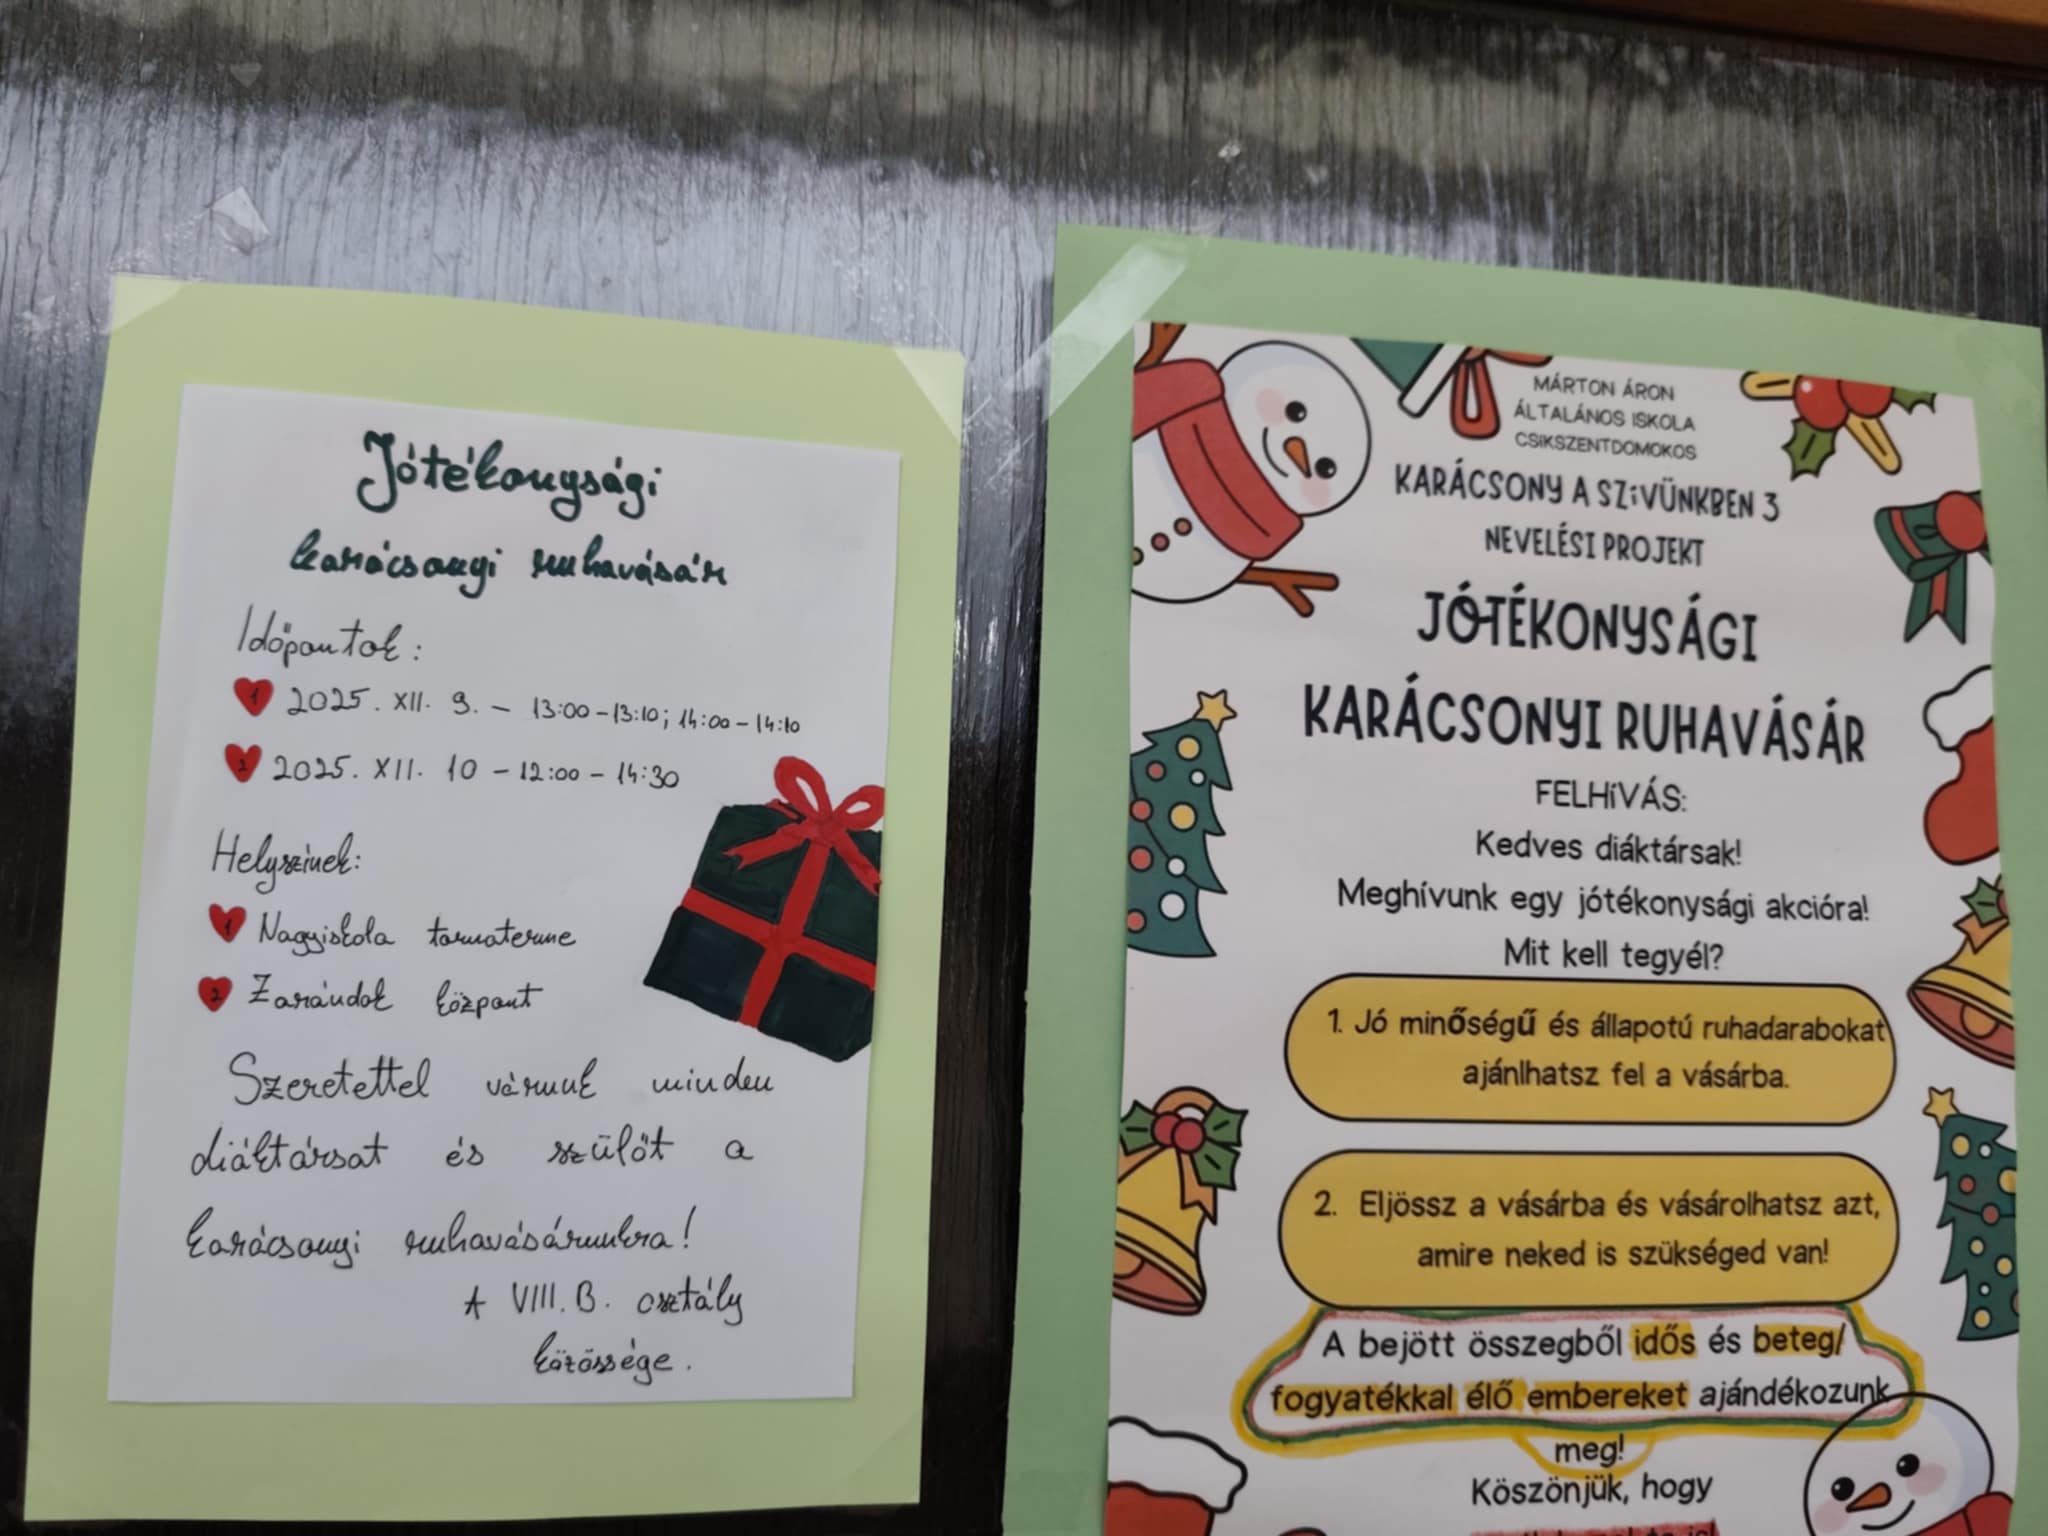 Jótékonysági
karácsonyi ruhavásár
Időpontok:
1 2025. XII. 9. – 13:00–13:10; 14:00–14:10
2 2025. XII. 10 – 12:00 – 14:30
Helyszínek:
1 Nagyiskola tornaterme
2 Zarándok központ
Szeretettel várunk minden
diáktársat és szülőt a
karácsonyi ruhavásárunkra!
A VIII. B. osztály
közössége.
MÁRTON ÁRON
ÁLTALÁNOS ISKOLA
CSIKSZENTDOMOKOS
KARÁCSONY A SZíVÜNKBEN 3
NEVELÉSI PROJEKT
JÓTÉKONYSÁGI
KARÁCSONYI RUHAVÁSÁR
FELHíVÁS:
Kedves diáktársak!
Meghívunk egy jótékonysági akcióra!
Mit kell tegyél?
1. Jó minőségű és állapotú ruhadarabokat
ajánlhatsz fel a vásárba.
2. Eljössz a vásárba és vásárolhatsz azt,
amire neked is szükséged van!
A bejött összegből idős és beteg/
fogyatékkal élő embereket ajándékozunk
meg!
Köszönjük, hogy